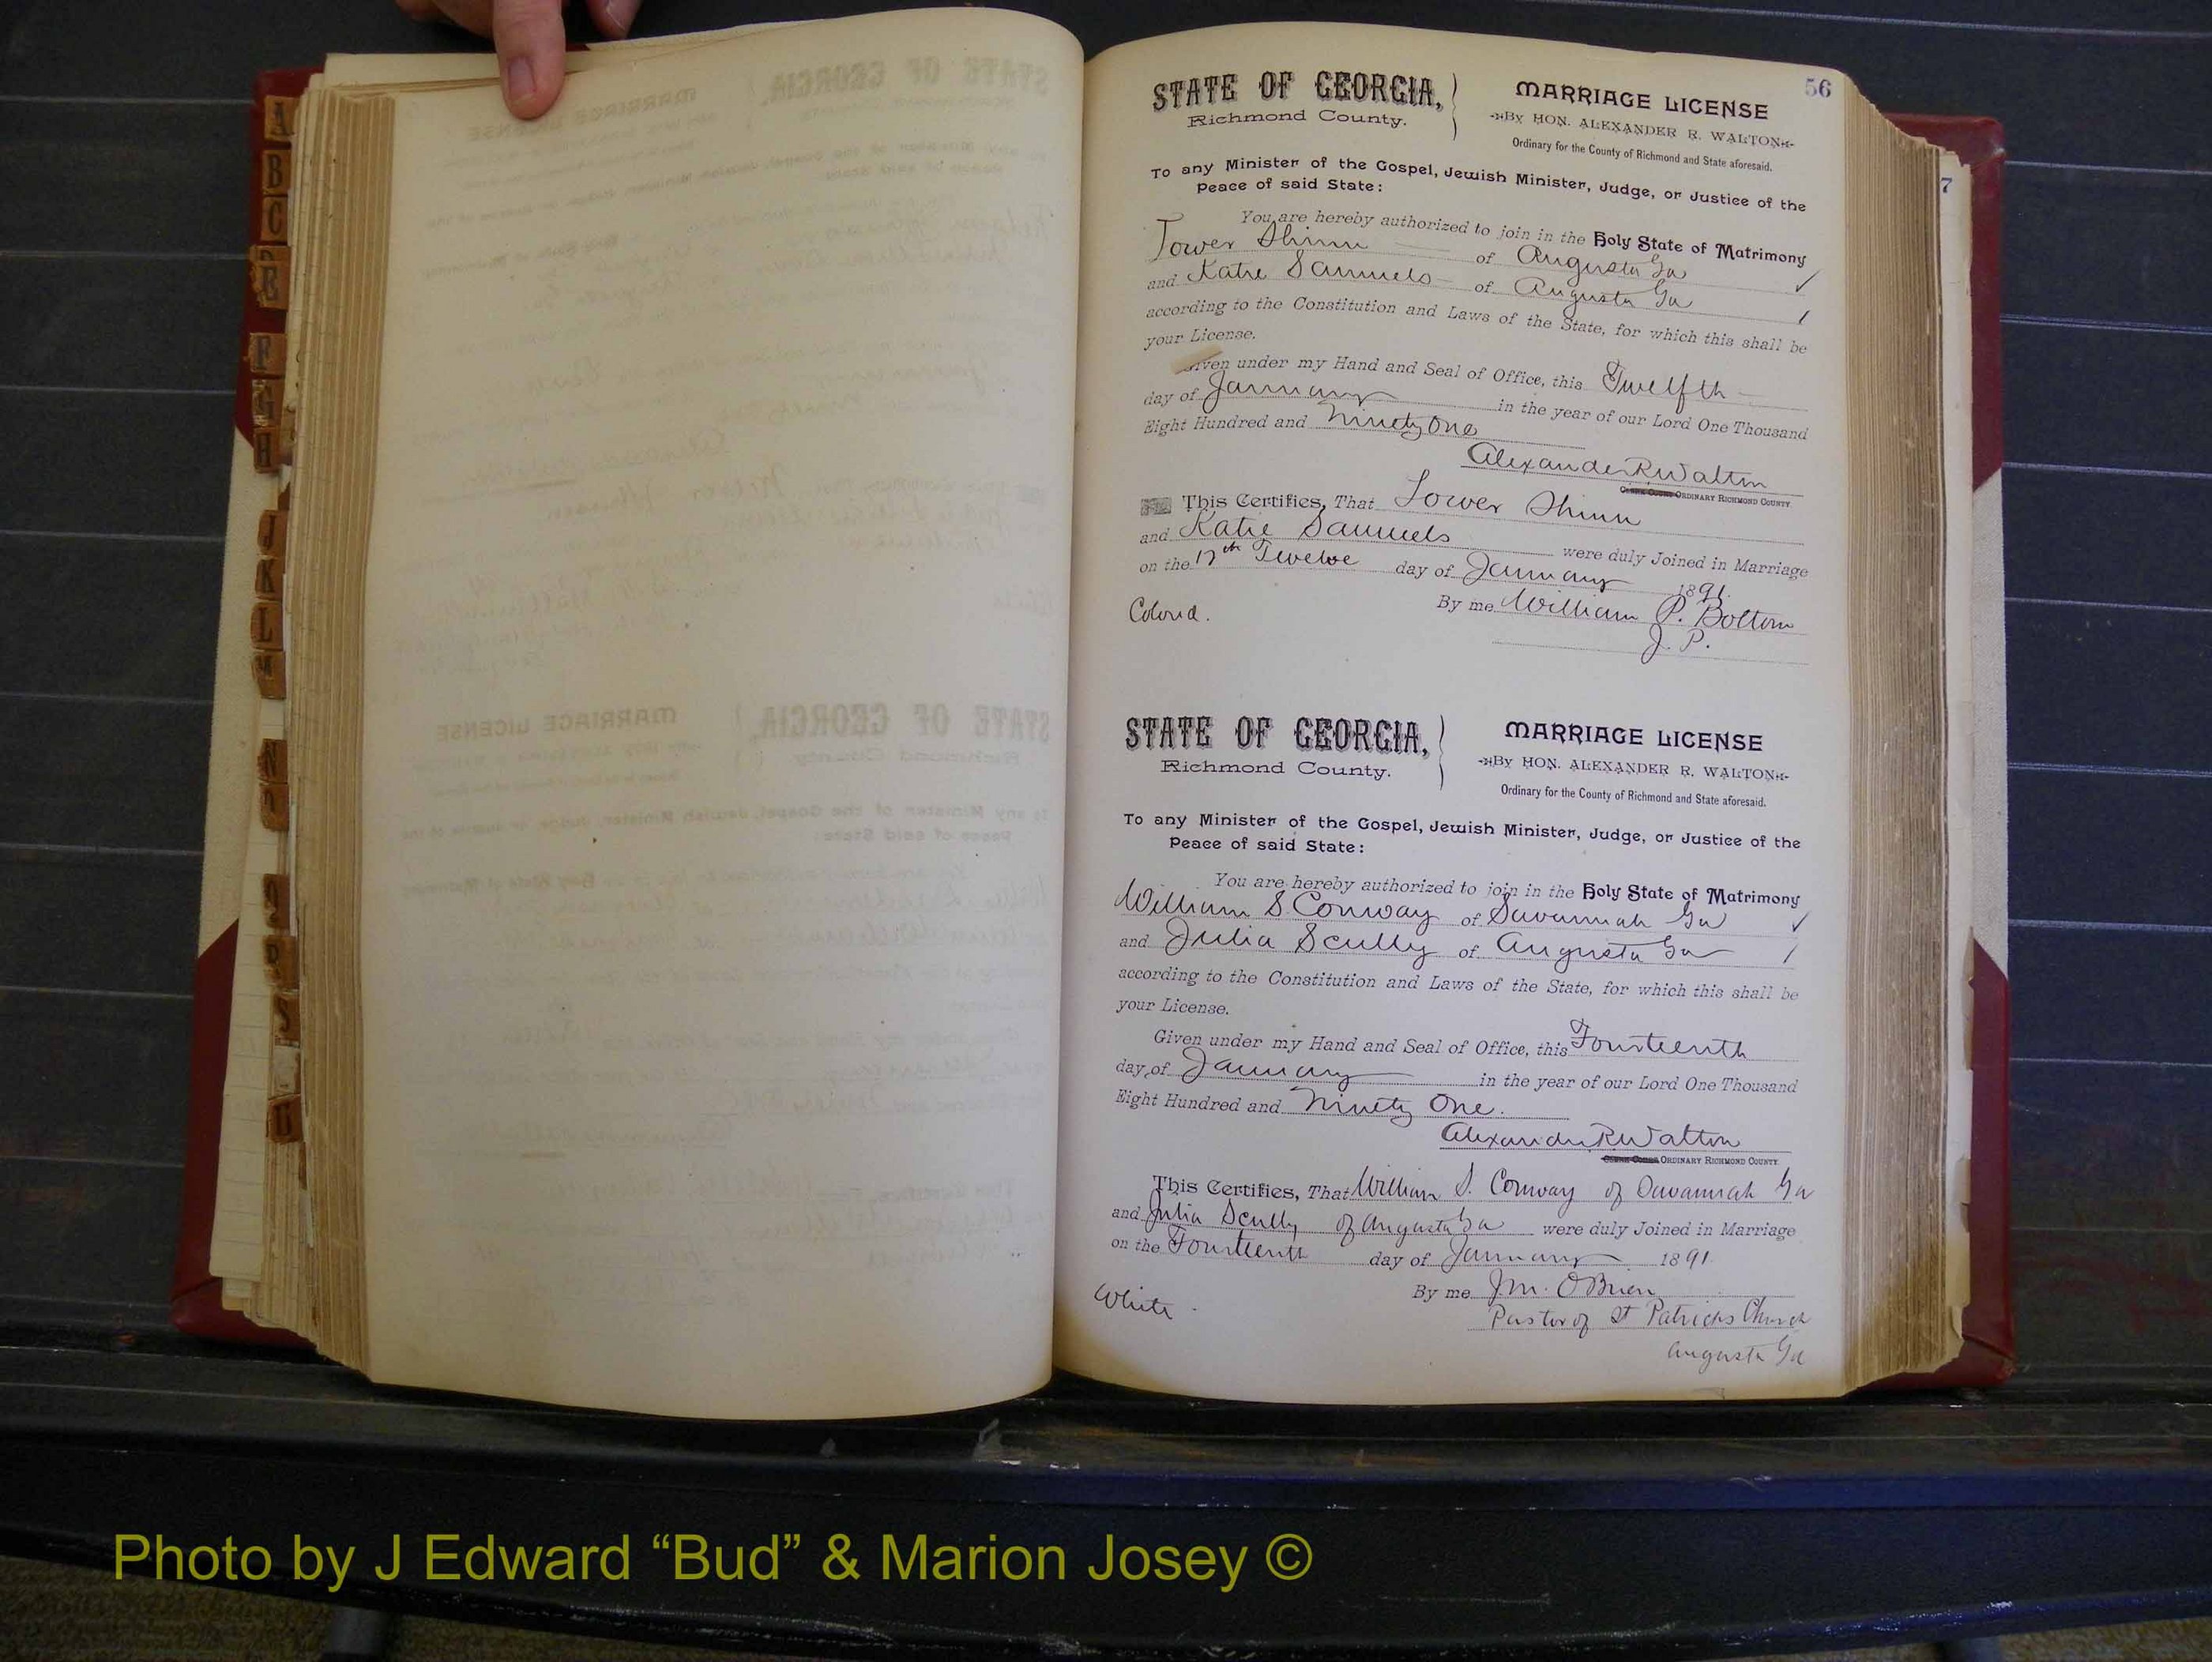 56
STATE OF GEORGIA,
Richmond County.
MARRIAGE LICENSE
By HON. ALEXANDER R. WALTON
Ordinary for the County of Richmond and State aforesaid.
To any Minister of the Gospel, Jewish Minister, Judge, or Justice of the
Peace of said State:
You are hereby authorized to join in the Holy State of Matrimony
Tower Shinn of Augusta Ga
and Katie Samuels of Augusta Ga
according to the Constitution and Laws of the State, for which this shall be
your License.
Given under my Hand and Seal of Office, this Twelfth
day of January in the year of our Lord One Thousand
Eight Hundred and Ninety One
Alexander R Walton
ORDINARY RICHMOND COUNTY.
This Certifies, That Tower Shinn
and Katie Samuels were duly Joined in Marriage
on the 12th Twelve day of January 1891.
Colored. By me William P. Bolton
J. P.
STATE OF GEORGIA,
Richmond County.
MARRIAGE LICENSE
By HON. ALEXANDER R. WALTON
Ordinary for the County of Richmond and State aforesaid.
To any Minister of the Gospel, Jewish Minister, Judge, or Justice of the
Peace of said State:
You are hereby authorized to join in the Holy State of Matrimony
William S. Conway of Savannah Ga
and Julia Scully of Augusta Ga
according to the Constitution and Laws of the State, for which this shall be
your License.
Given under my Hand and Seal of Office, this Fourteenth
day of January in the year of our Lord One Thousand
Eight Hundred and Ninety One.
Alexander R Walton
ORDINARY RICHMOND COUNTY.
This Certifies, That William S. Conway of Savannah Ga
and Julia Scully of Augusta Ga were duly Joined in Marriage
on the Fourteenth day of January 1891.
White. By me J.M. O'Brien
Pastor of St Patricks Church
Augusta Ga
7
A
B
C
E
F
G
H
J
K
L
M
N
R
S
Photo by J Edward “Bud” & Marion Josey ©